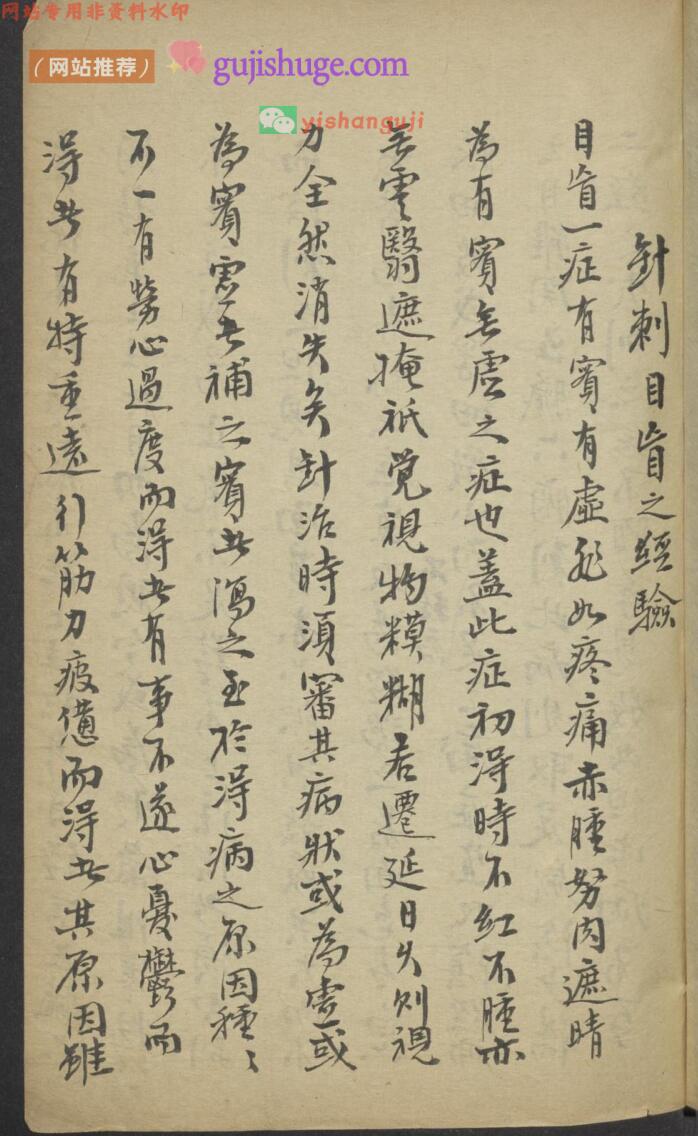 网站专用非资料水印
(网站推荐)
gujishuge.com
yishanguji
針刺目盲之經驗
目盲一症有實有虛非如疼痛赤腫努肉遮睛
為有實無虛之症也蓋此症初得時不紅不腫亦
無雲翳遮掩祇覚視物糢糊若遷延日久則視
力全然消失矣針治時須審其病狀或為虛或
為實虛者補之實者瀉之至於得病之原因種〻
不一有勞心過度而得者有事不遂心憂鬱而
得者有持重遠行筋力疲憊而得者其原因雖